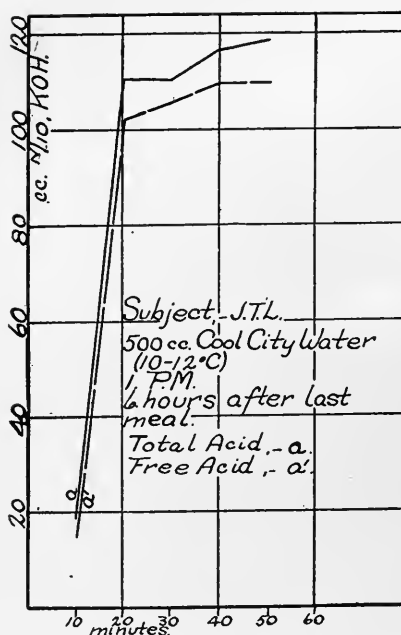 120
100
80
60
40
20
cc. N/10, KOH.
Subject,-J.T.L.
500 cc. Cool City Water
(10-12°C)
1 P.M.
6 hours after last
meal.
Total Acid,- a.
Free Acid,- a'.
a
a'
10 20 30 40 50 60
minutes.